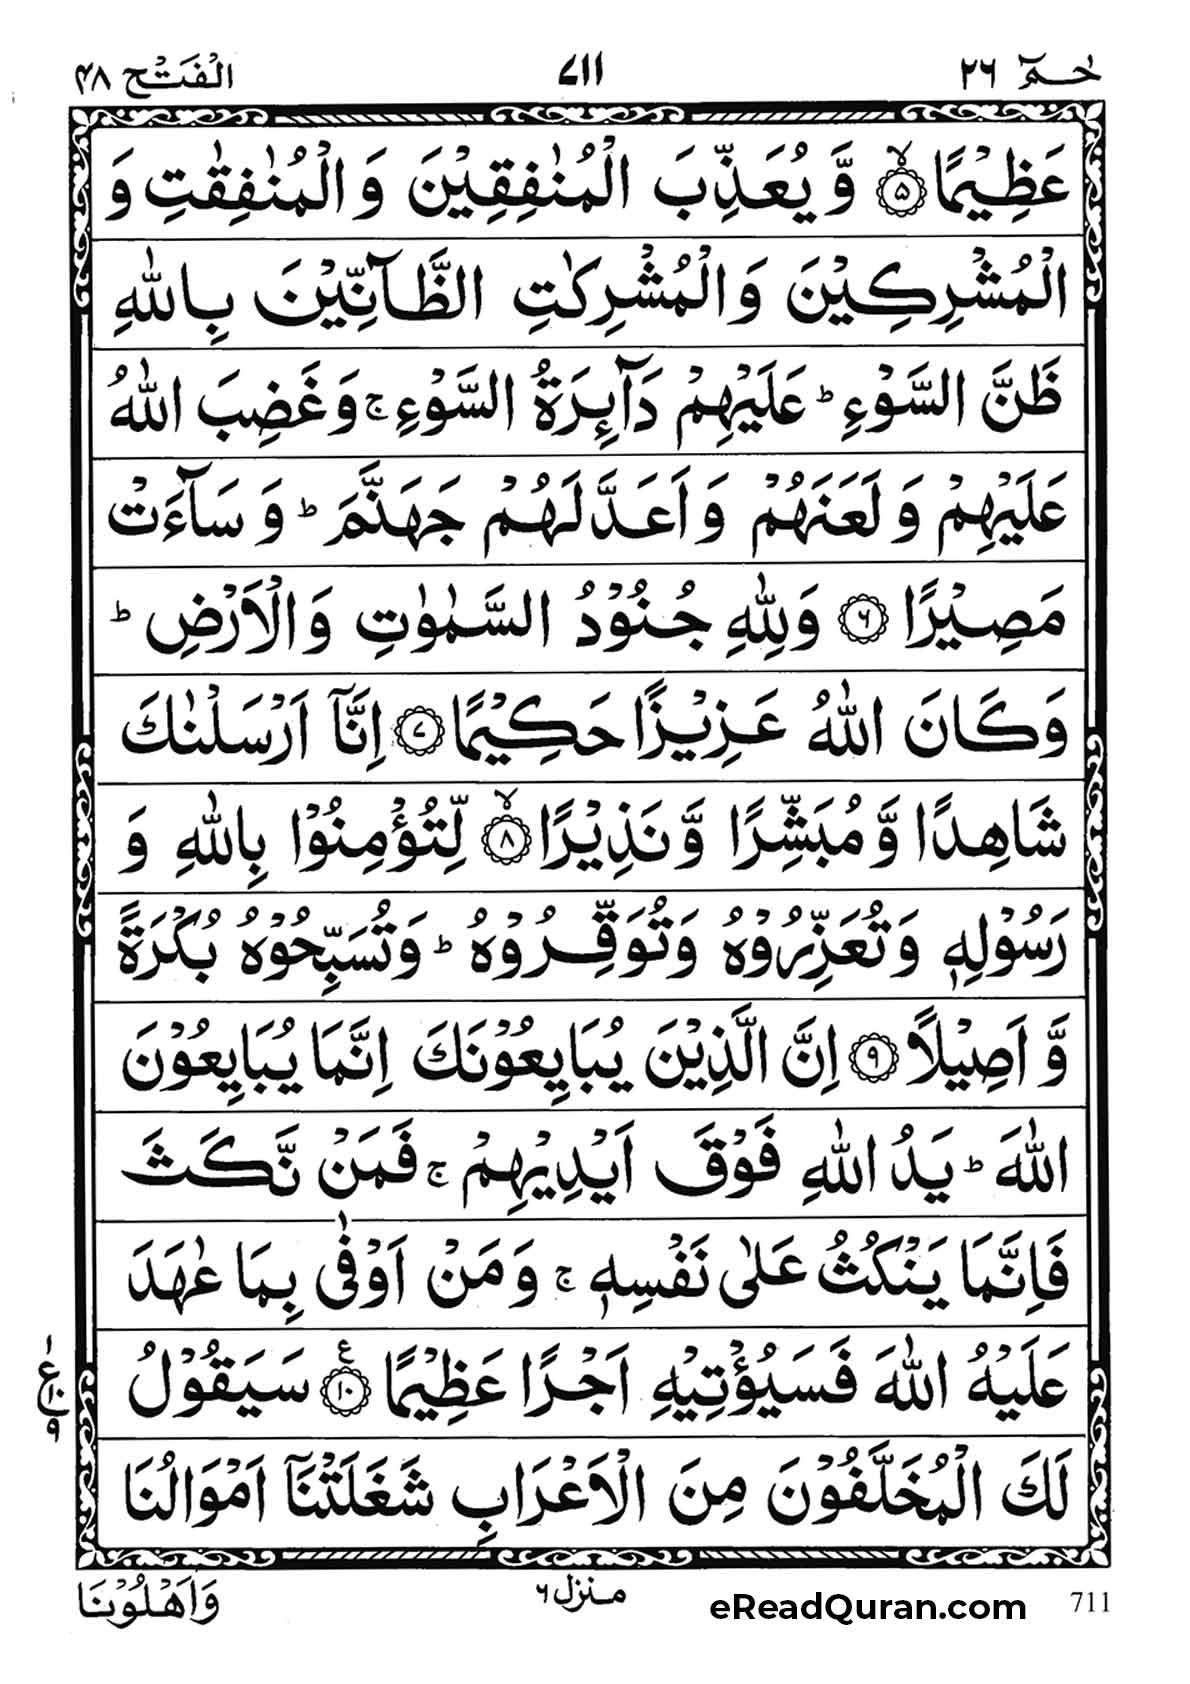 حٰمٓ ٢٦
٧١١
الْفَتْح ٤٨
عَظِيْمًا ۙ﴿٥﴾ وَّ يُعَذِّبَ الْمُنٰفِقِيْنَ وَ الْمُنٰفِقٰتِ وَ
الْمُشْرِكِيْنَ وَ الْمُشْرِكٰتِ الظَّآنِّيْنَ بِاللّٰهِ
ظَنَّ السَّوْءِ ؕ عَلَيْهِمْ دَآىِٕرَةُ السَّوْءِ ۚ وَ غَضِبَ اللّٰهُ
عَلَيْهِمْ وَ لَعَنَهُمْ وَ اَعَدَّ لَهُمْ جَهَنَّمَ ؕ وَ سَآءَتْ
مَصِيْرًا ﴿٦﴾ وَ لِلّٰهِ جُنُوْدُ السَّمٰوٰتِ وَ الْاَرْضِ ؕ
وَ كَانَ اللّٰهُ عَزِيْزًا حَكِيْمًا ﴿٧﴾ اِنَّاۤ اَرْسَلْنٰكَ
شَاهِدًا وَّ مُبَشِّرًا وَّ نَذِيْرًا ۙ﴿٨﴾ لِّتُؤْمِنُوْا بِاللّٰهِ وَ
رَسُوْلِهٖ وَ تُعَزِّرُوْهُ وَ تُوَقِّرُوْهُ ؕ وَ تُسَبِّحُوْهُ بُكْرَةً
وَّ اَصِيْلًا ﴿٩﴾ اِنَّ الَّذِيْنَ يُبَايِعُوْنَكَ اِنَّمَا يُبَايِعُوْنَ
اللّٰهَ ؕ يَدُ اللّٰهِ فَوْقَ اَيْدِيْهِمْ ۚ فَمَنْ نَّكَثَ
فَاِنَّمَا يَنْكُثُ عَلٰى نَفْسِهٖ ۚ وَ مَنْ اَوْفٰى بِمَا عٰهَدَ
عَلَيْهُ اللّٰهَ فَسَيُؤْتِيْهِ اَجْرًا عَظِيْمًا ﴿١٠﴾ ع سَيَقُوْلُ
١
ع ١٠
٩
لَكَ الْمُخَلَّفُوْنَ مِنَ الْاَعْرَابِ شَغَلَتْنَاۤ اَمْوَالُنَا
وَ اَهْلُوْنَا
منزل ٦
eReadQuran.com
711